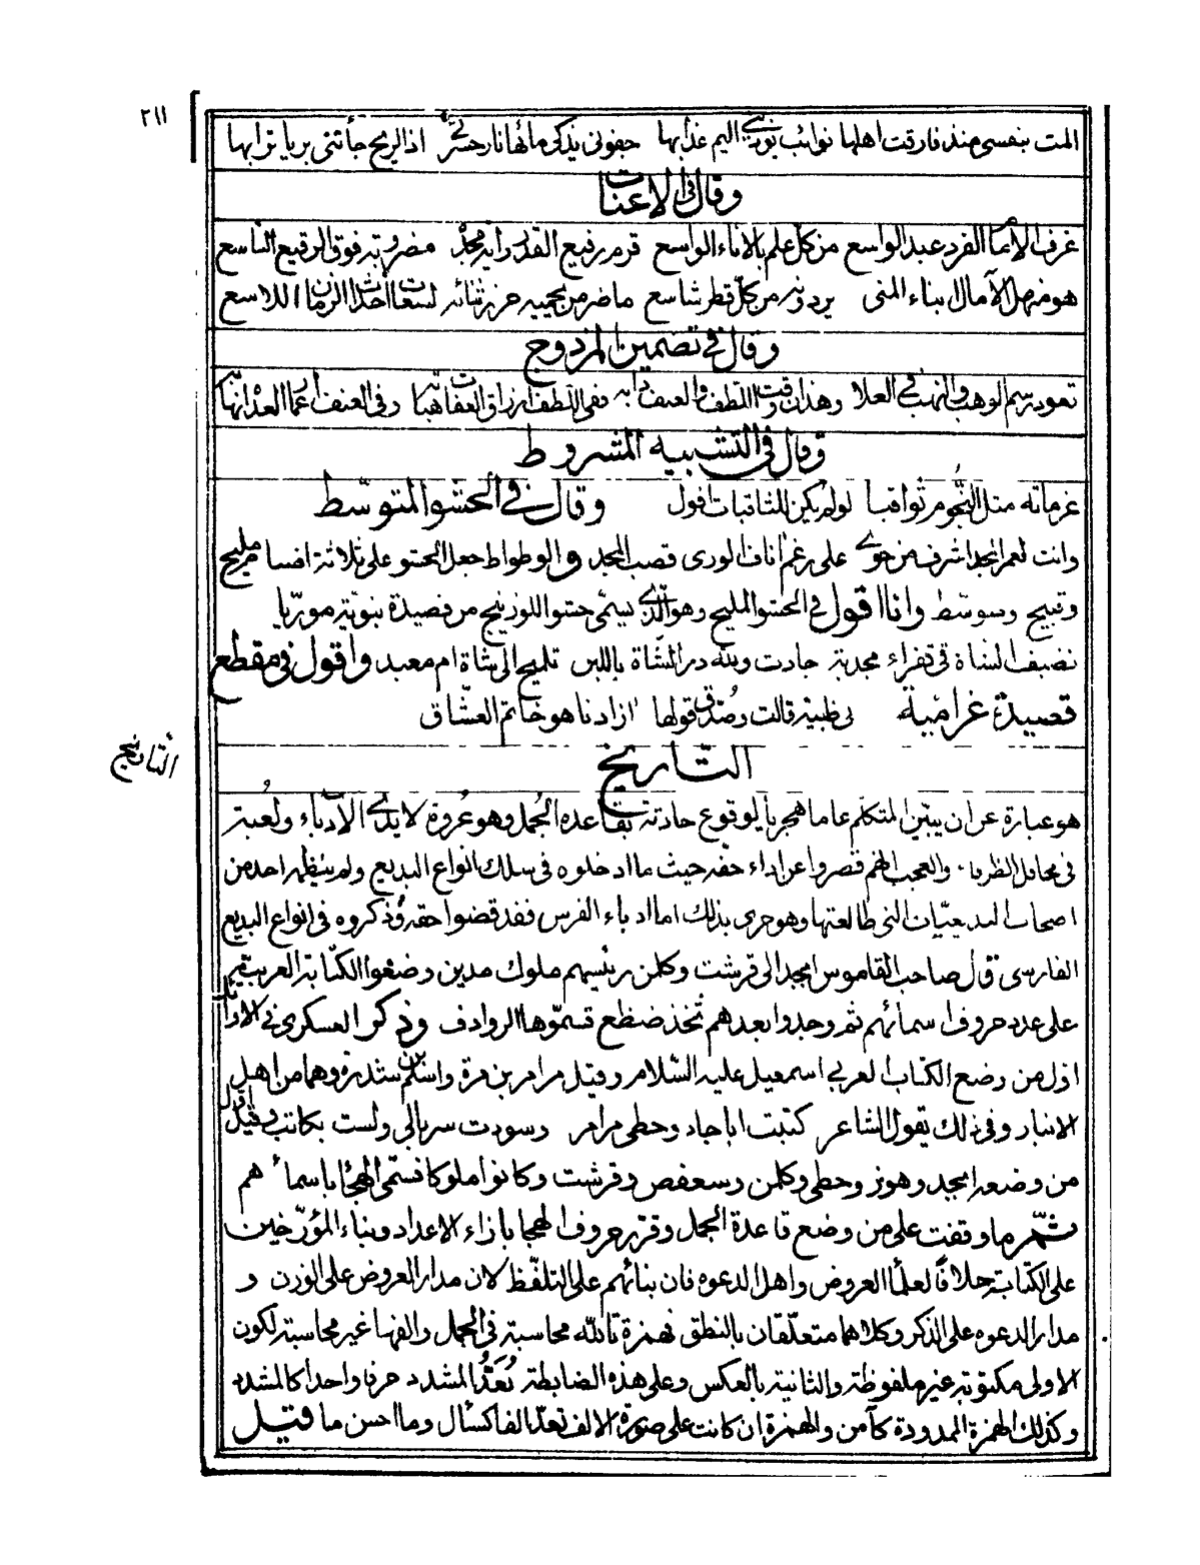 ٢١١
المت بنفسى منذ فارقت اهلها نوائب يؤذى اليم عذابها جفونى يذكى مائها نار حسرتى اذ الريح جائتنى بريا ترابها
وقال فى الاعنات
غرف الأمام الفرد عبد الواسع من كل علم بالاناء الواسع قرم رفيع القدر راية مجده مضروبة فوق الرقيع التاسع
هو منهل الآمال ابناء المنى يردونه من كل قطر شاسع ما ضر من يحميه حرز ثنائه لسعات احداث الزمان اللاسع
وقال فى تضمين المزدوج
تعود رسم الوهب والنهب فى العلا وهذان وقت اللطف والعنف دابه ففى اللطف ارزاق العفاة هباته وفى العنف اعمار العداة نهابه
وقال فى التشبيه المشروط
عزماته مثل النجوم ثواقبا لو لم يكن للثاقبات افول وقال فى الحشو المتوسط
وانت لعمر المجد اشرف من حوى على رغم اناف الورى قصب المجد والوطواط جعل الحشو على ثلاثة اقسام مليح
وقبيح ومتوسط وانا اقول فى الحشو المليح وهو الذى يسمى حشو اللوزينج من قصيدة نبوية موريا
تضيف الشاة فى قفراء مجدبة جادت ولله در الشاة باللبن تلميح الى شاة ام معبد واقول فى مقطع
قصيدة غرامية لى ظبية قالت وصدق قولها ازادنا هو خاتم العشاق
التاريخ
التاريخ
هو عبارة عن ان يبين المتكلم عاما هجريا لوقوع حادثة بقاعدة الجمل وهو عروة لايدى الأدباء ولعبة
فى محافل الظرفاء والعجب انهم قصروا عن اداء حقه حيث ما ادخلوه فى سلك انواع البديع ولم ينظمه احد من
اصحاب البديعيات التى طالعتها وهو حرى بذلك اما ادباء الفرس فقد قضوا حقه وذكروه فى انواع البديع
الفارسى قال صاحب القاموس ابجد الى قرشت وكلمن رئيسهم ملوك مدين وضعوا الكتابة العربية
على عدد حروف اسمائهم ثم وجدوا بعدهم ثخذ ضظغ فسموها الروادف وذكر العسكرى فى الاوائل
اول من وضع الكتاب العربى اسمعيل عليه السلام وقيل مرامر بن مرة واسلم بن سدرة وهما من اهل
الانبار وفى ذلك يقول الشاعر كتبت اباجاد وحطى مرامر وسودت سربالى ولست بكاتب وقيل اول
من وضعه ابجد وهوز وحطى وكلمن وسعفص وقرشت وكانوا ملوكا فسمى الهجا باسمائهم
ثم ما وقفت على من وضع قاعدة الجمل وقرر حروف الهجا بازاء الاعداد وبناء المؤرخين
على الكتابة خلافا لعلما العروض واهل الدعوه فان بنائهم على التلفظ لان مدار العروض على الوزن و
مدار الدعوه على الذكر وكلاهما متعلقان بالنطق فهمزة تالله محاسبة فى الجمل والفها غير محاسبة لكون
الاولى مكتوبة غير ملفوظة والثانية بالعكس وعلى هذه الضابطة يعد المشدد حرفا واحدا كالمشدد
وكذلك الهمزة الممدودة كآمن والهمزة ان كانت على صورة الالف تعد الفا كسأل وما احسن ما قيل